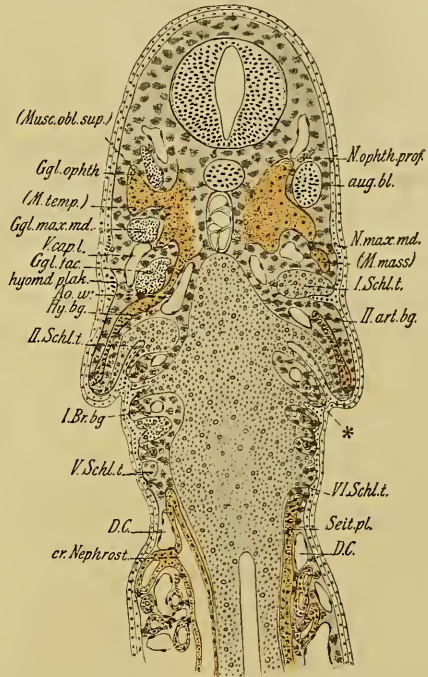 (Musc.obl.sup.)
Ggl.ophth
(M.temp.)
Ggl.max.md.
V.cap.l.
Ggl.fac.
hyomd.plak.
Ao.w.
Hy.bg.
II.Schl.t.
I.Br.bg
V.Schl.t.
D.C.
cr.Nephrost.
N.ophth.prof.
aug.bl.
N.max.md.
(M.mass)
I.Schl.t.
II.art.bg.
*
VI.Schl.t.
Seit.pl.
D.C.